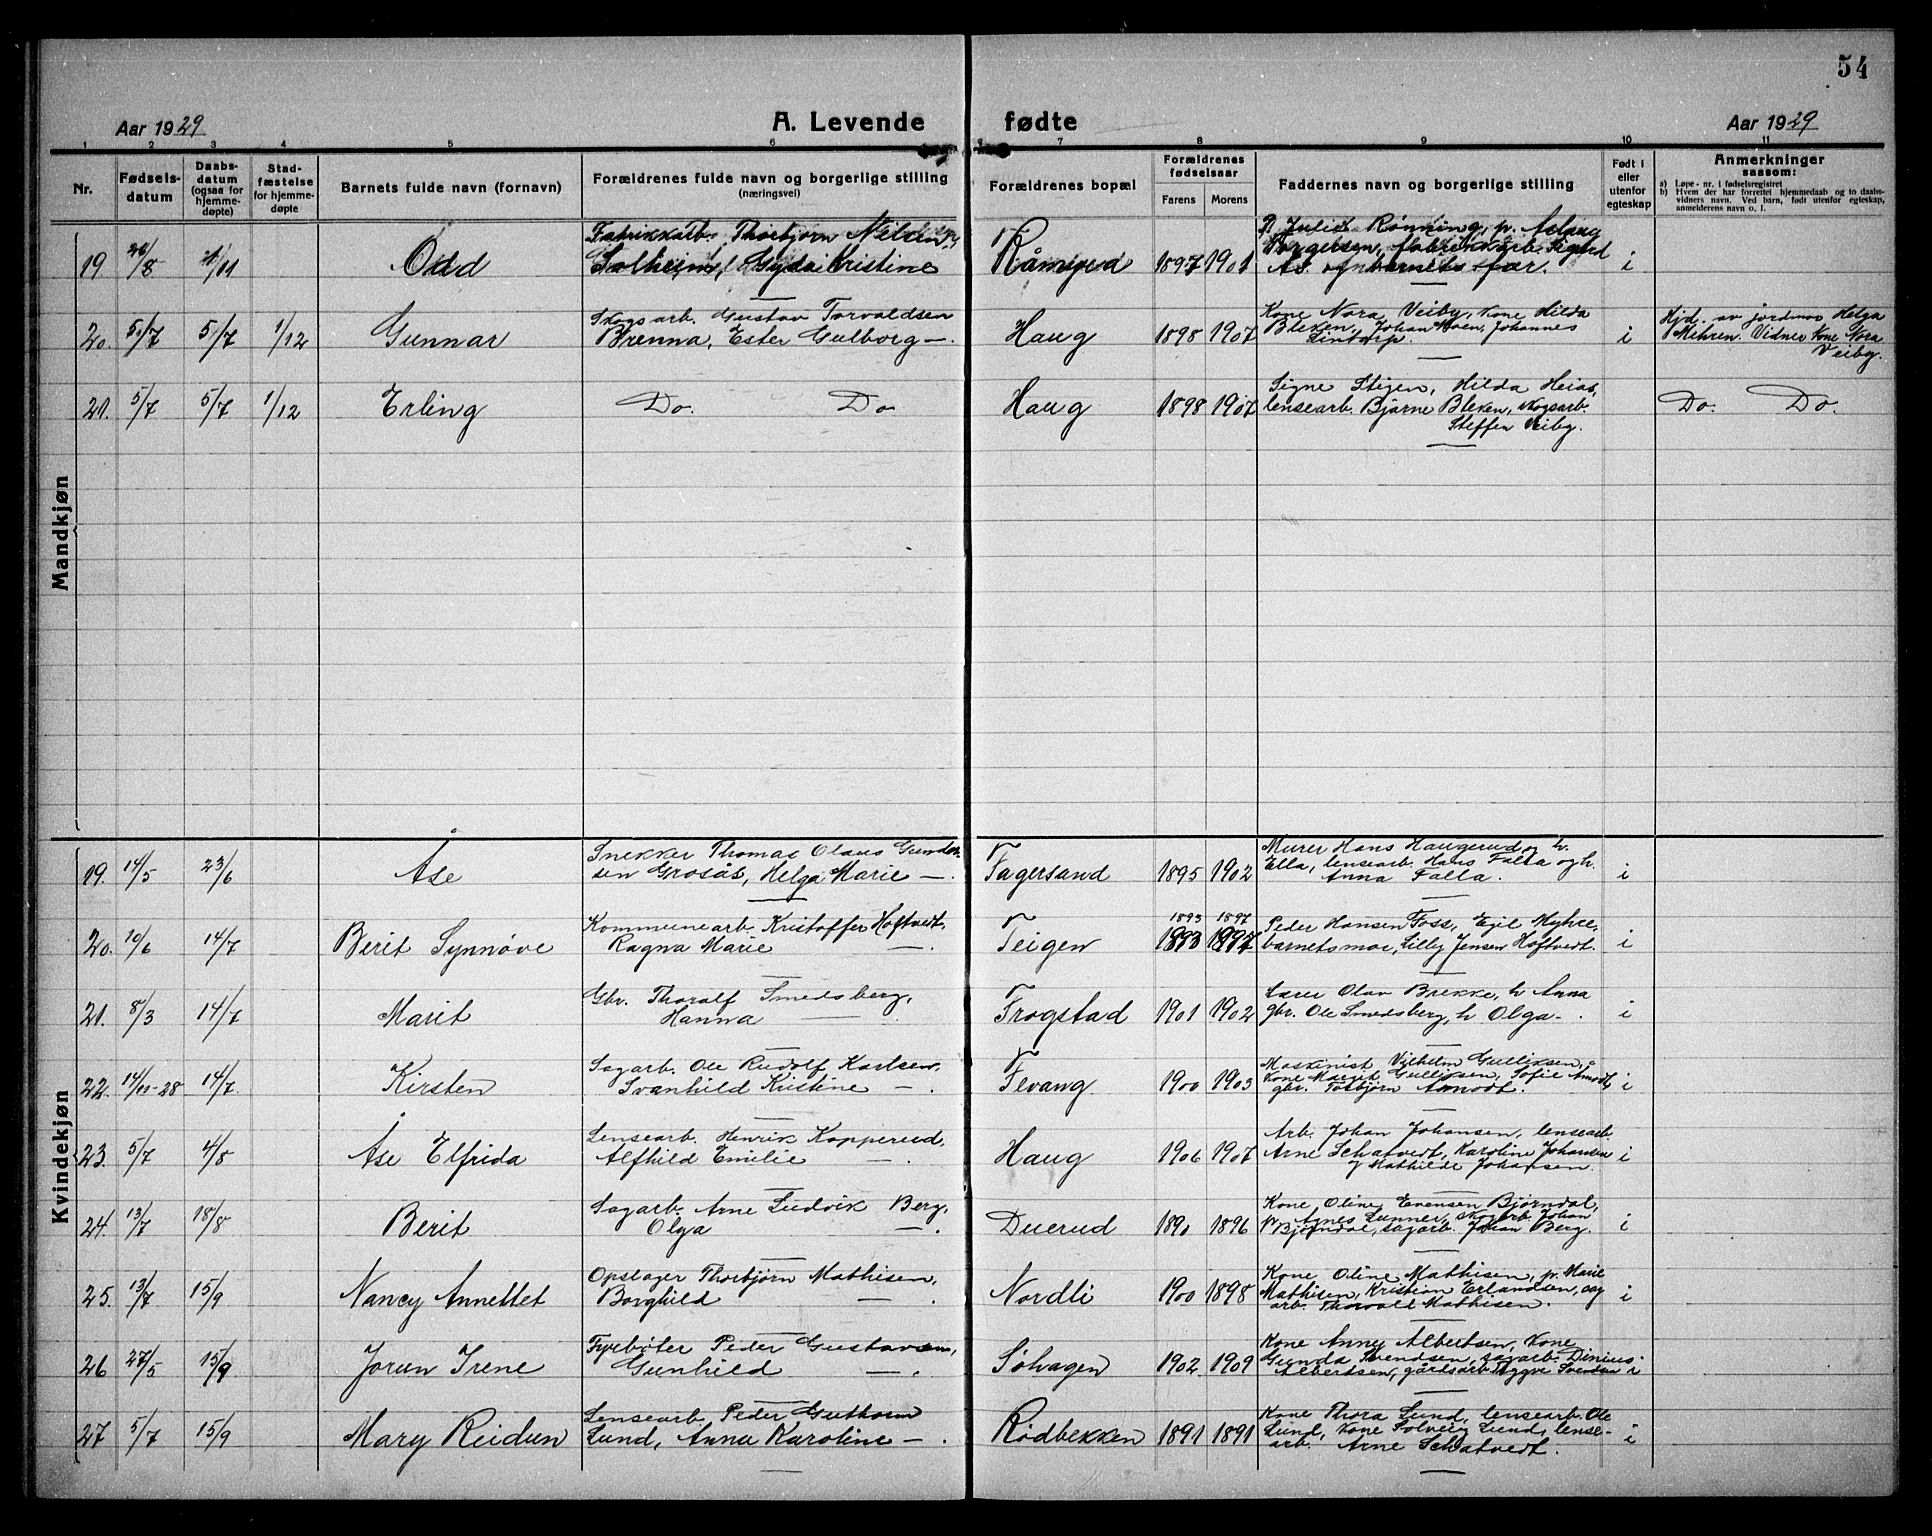 54
Aar 1929 A. Levende fødte Aar 1929
1 2 3 4 5 6 7 8 9 10 11
Nr. Fødselsdatum Daabsdatum (ogsaa for hjemmedøpte) Stadfæstelse for hjemmedøpte Barnets fulde navn (fornavn) Forældrenes fulde navn og borgerlige stilling (næringsvei) Forældrenes bopæl Forældrenes fødselsaar Farens Morens Faddernes navn og borgerlige stilling Født i eller utenfor egteskap Anmerkninger saasom:
a) Løpe-nr. i fødselsregistret
b) Hvem der har forrettet hjemmedaab og to daabsvidners navn. Ved barn, født utenfor egteskap, anmelderens navn o. l.
Mandkjøn
Fabrikkarb. Thorbjørn Nilsen
19 /8 /11 Odd Solheim, Gyda Kristine Råmyrd 1897 1901 i
Julie Rønning, p. Aslaug
Borgersen, fabrikkarb. Sigurd
As og barnets far.
Skogsarb. Gustav Torvaldsen
20. 5/7 5/7 1/12 Gunnar Brenna, Ester Gulborg —. Haug 1898 1907 i
Kone Nora Veiby, Kone Hilda
Bleken, Johan Moen, Johannes
Lintorp.
Hjd. av jordmor Helga
Mehren. Vidner Kone Nora
Veiby.
21. 5/7 5/7 1/12 Erling Do. Do Haug 1898 1907 Do. Do.
Signe Stigen, Hilda Heias,
lensearb. Bjarne Bleken, skogsarb.
Steffen Veiby.
Kvindekjøn
Snekker Thomas Olaus Gunder-
19. 14/5 23/6 Åse sen Grosås, Helga Marie —. Fagersand 1895 1902 i
Murer Hans Haugerud og h.
Ella, lensearb. Hans Falla og h.
Anna Falla.
Kommunearb. Kristoffer Hoftvedt,
20. 10/6 14/7 Berit Synnøve Ragna Marie —. Teigen 1893 1897 1893 1897 i
Peder Hansen Foss, Egil Myhre,
barnetsmor, Lilly Jensen Hoftvedt.
Gbr. Thoralf Smedsberg,
21. 8/3 14/7 Marit Hanna — Frogstad 1901 1902 i
Lærer Olav Brekke, h Anna
gbr. Ole Smedsberg, h Olga.
Sagarb. Ole Rudolf Karlsen,
22. 14/11-28 14/7 Kirsten Svanhild Kristine —. Fevang 1900 1903 i
Maskinist Vilhelm Gulliksen,
Kone Margit Gulliksen, Sofie Åmodt,
gbr. Torbjørn Åmodt.
Lensearb. Henrik Kopperud,
23. 5/7 4/8 Åse Elfrida Alfhild Emilie —. Haug 1906 1907 i
Arb. Johan Johansen, lensearb.
Arne Schatvedt, Karoline Johansen
og Mathilde Johansen.
Sagarb. Arne Ludvik Berg,
24. 13/7 18/8 Berit Olga —. Duerud 1890 1896 i
Kone Oline Evensen Bjørndal,
p. Agnes Lunner, skogarb. Johan
Bjørndal, sagarb. Johan Berg.
Opslager Thorbjørn Mathisen,
25. 13/7 15/9 Nancy Annettet Borghild —. Nordli 1900 1898 i
Kone Oline Mathisen, p. Marie
Mathisen, Kristian Erlandsen, sag
arb. Thorvald Mathisen.
Fyrbøter Peder Gustavsen,
26 27/5 15/9 Jorun Irene Gunhild —. Solhagen 1902 1909 i
Kone Anny Albertsen, Kone
Gunda Svendsen, sagarb. Dinius
Albertsen, gårdsarb. Trygve Svendsen
Lensearb. Peder Guthorm
27 5/7 15/9 Mary Reidun Lund, Anna Karoline —. Rødbekken 1891 1891 i
Kone Thora Lund, lensearb. Ole
Lund, Kone Solveig Lund, lense-
arb. Arne Schatvedt.